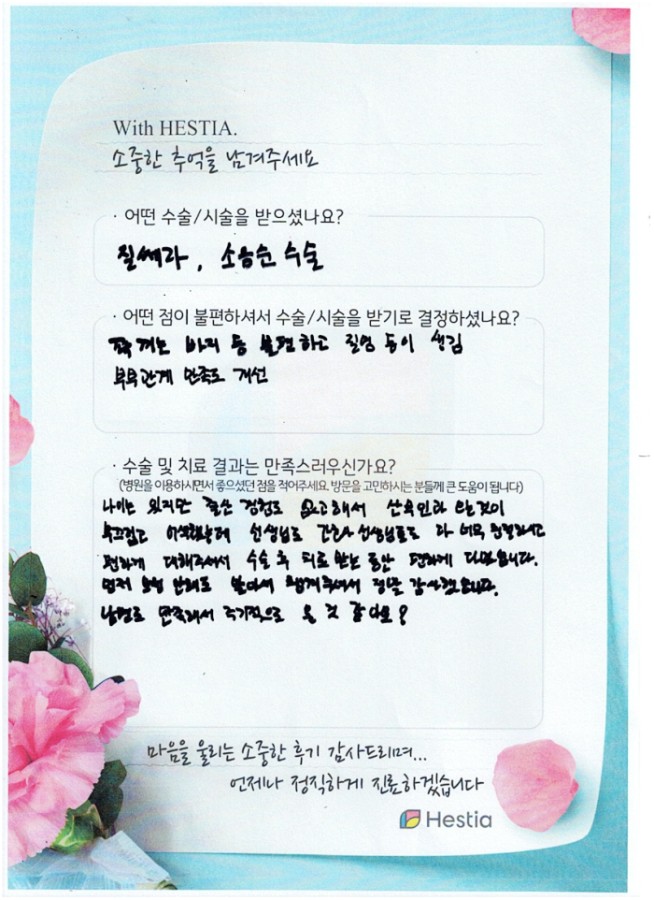 With HESTIA.
소중한 추억을 남겨주세요
· 어떤 수술/시술을 받으셨나요?
질쎄라, 소음순 수술
· 어떤 점이 불편하셔서 수술/시술을 받기로 결정하셨나요?
꽉 끼는 바지 등 불편하고 질염 등이 생김
부부관계 만족도 개선
· 수술 및 치료 결과는 만족스러우신가요?
(병원을 이용하시면서 좋으셨던 점을 적어주세요. 방문을 고민하시는 분들께 큰 도움이 됩니다)
나이는 있지만 출산 경험도 없고해서 산부인과 라는것이
부끄럽고 선생님도 간호사 선생님들도 다 너무 친절하시고
편하게 대해주셔서 수술 후 치료 받는 동안 편하게 다녔습니다.
먼저 챙겨주셔서 정말 감사했습니다.
남편도 만족해서 주기적으로 올 것 같아요?
마음을 울리는 소중한 후기 감사드리며...
언제나 정직하게 진료하겠습니다
Hestia